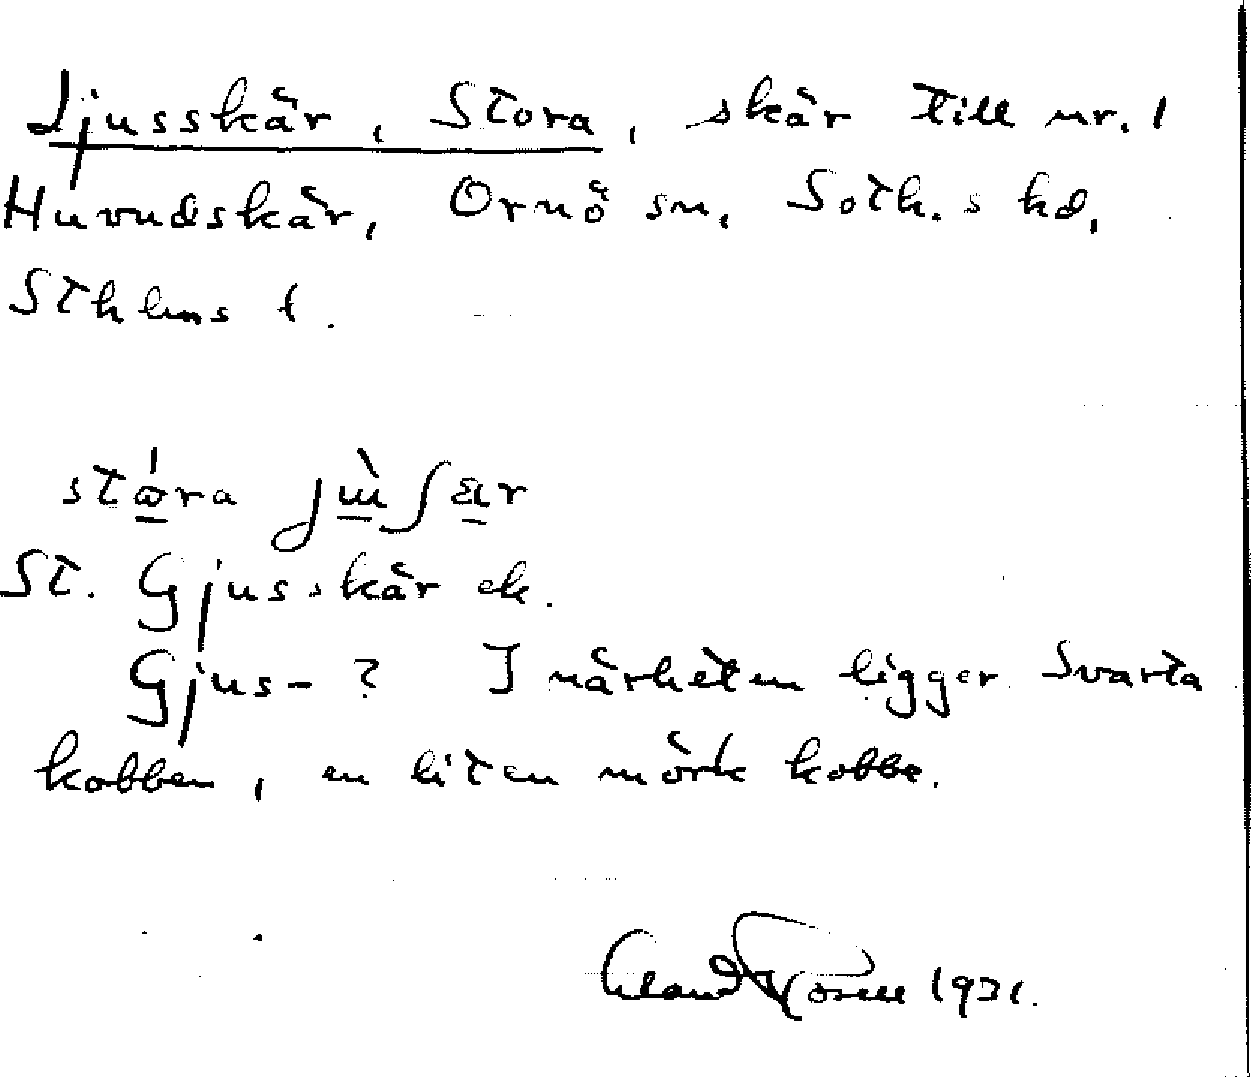 Ljusskär, Stora, skär till nr. 1
Huvudskär, Ornö sn, Soth.s hd,
Sthlms l.
stɷ́ra jɯ̀ʃær
St. Gjusskär ek.
Gjus- ? I närheten ligger Svarta
kobben, en liten mörk kobbe.
1931.